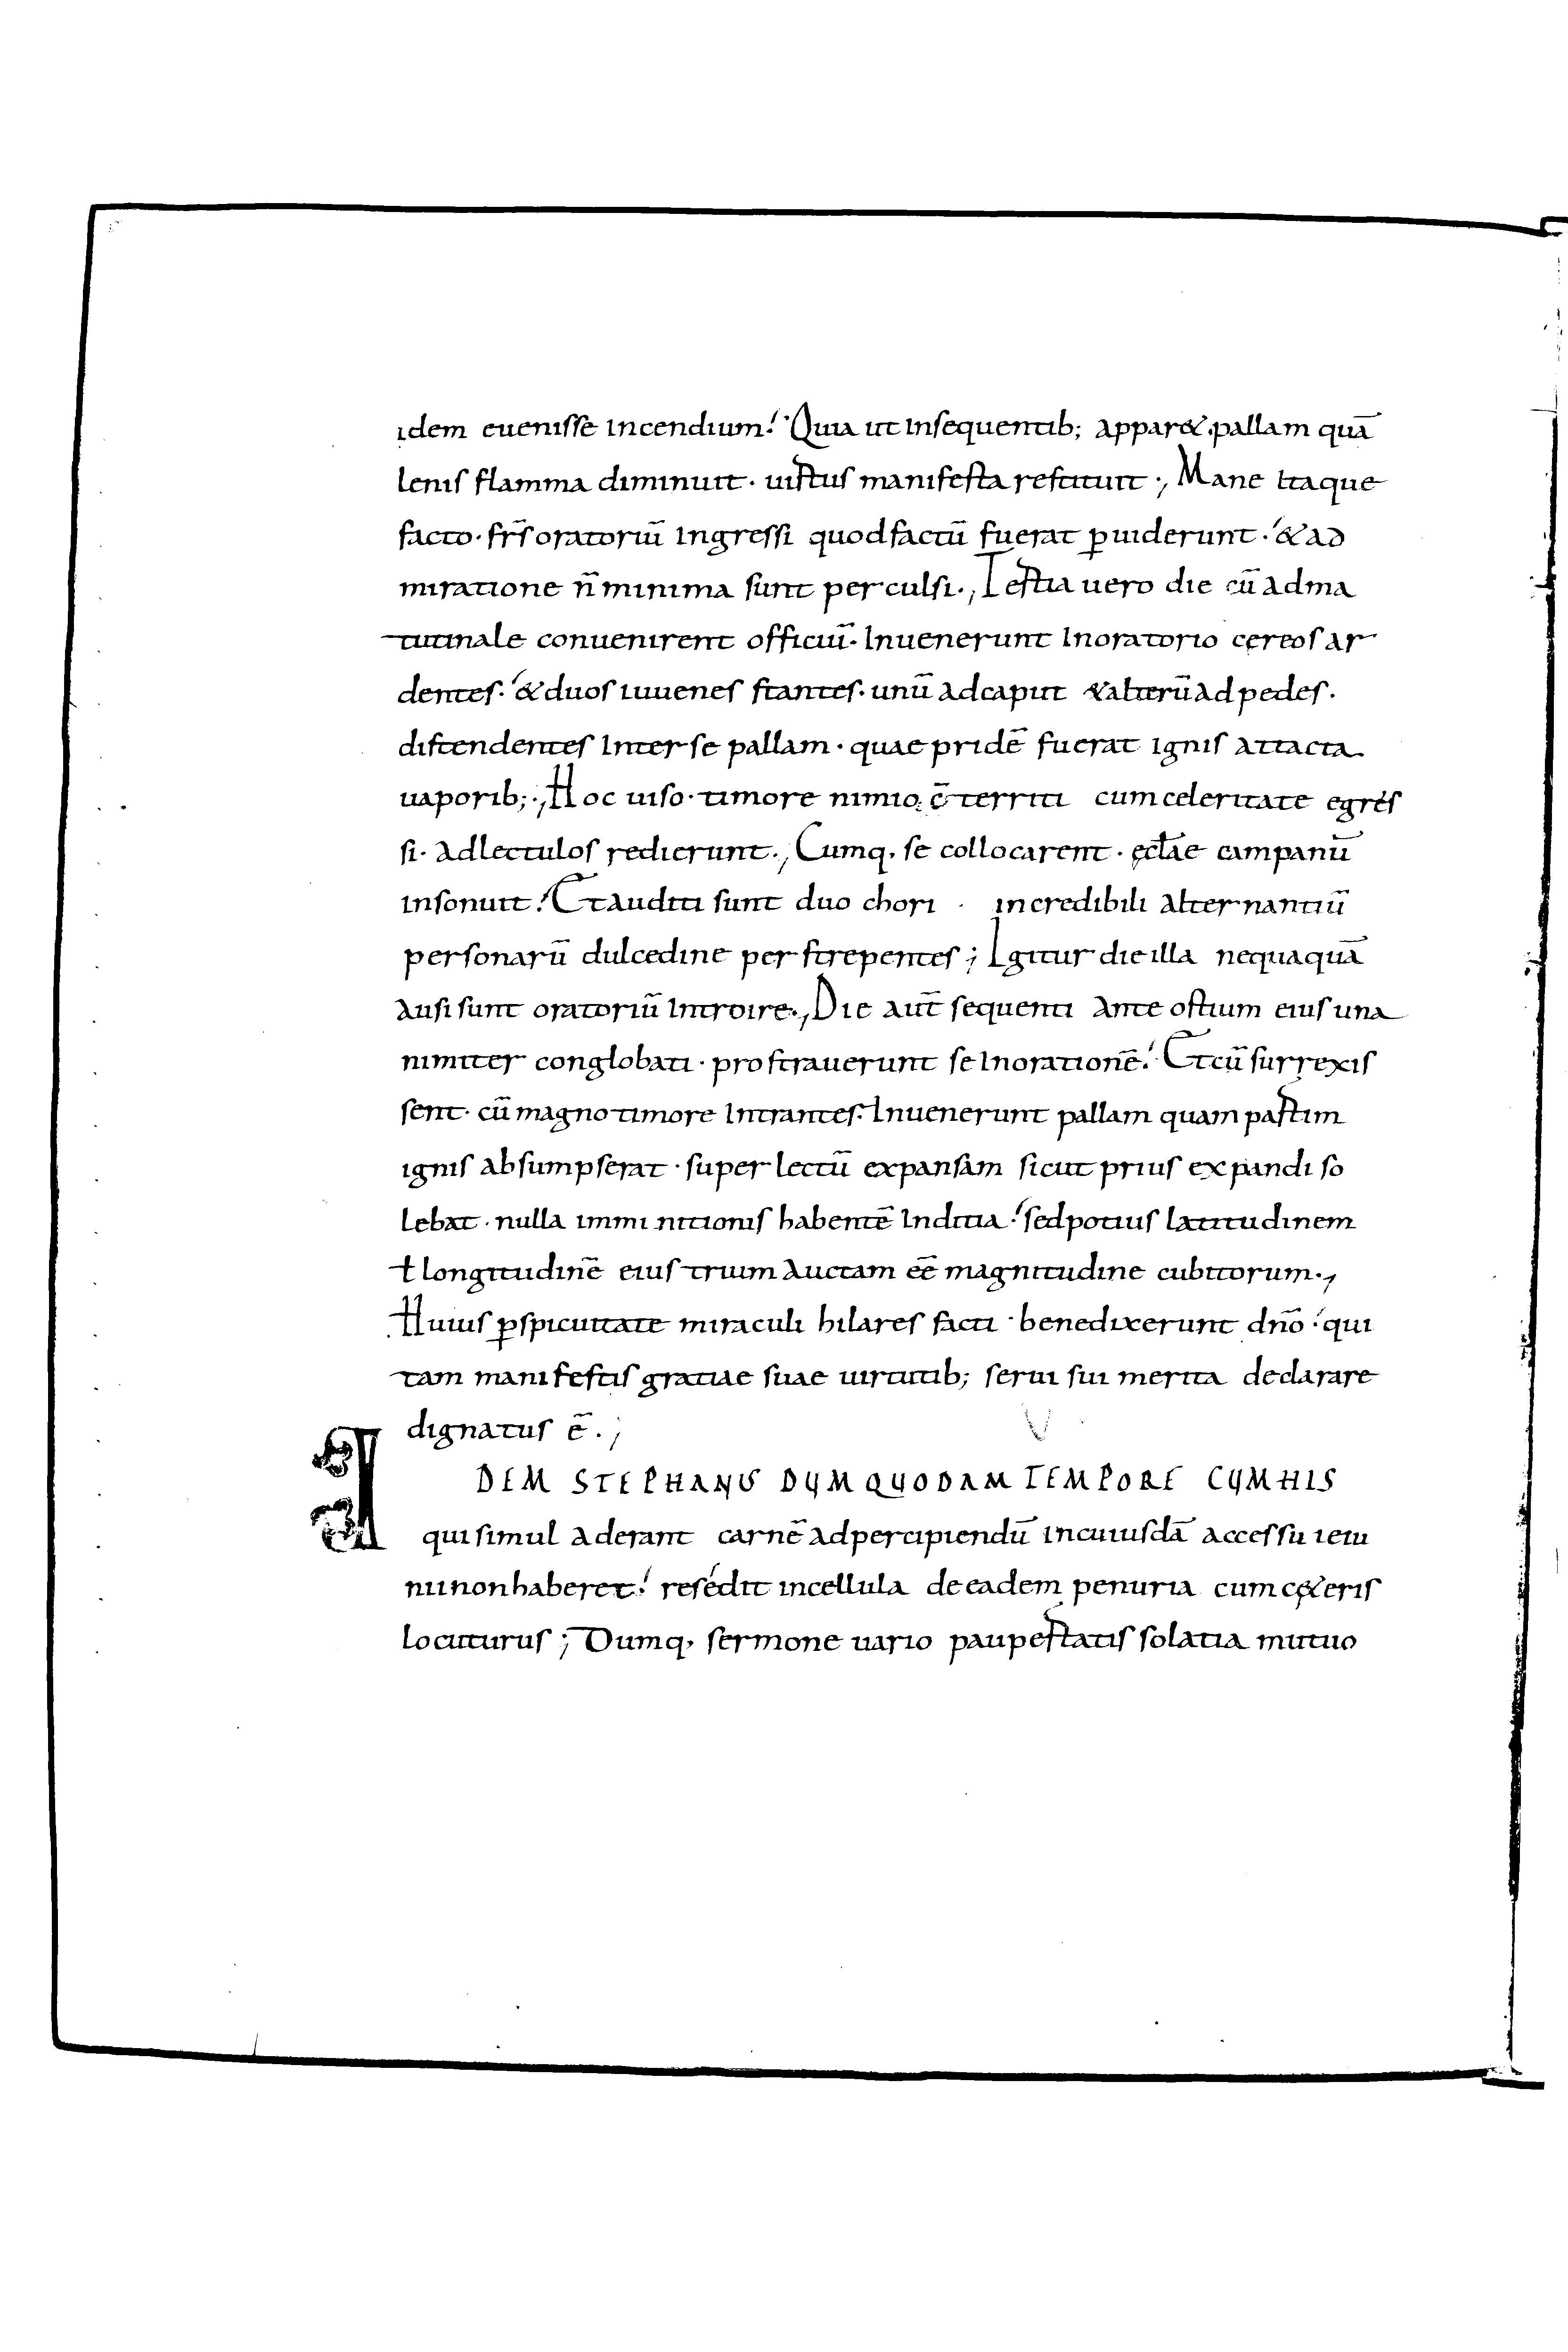 idem euenisse incendium. Quia ut insequentib; apparet. pallam quā
lenis flamma diminuit · uirtus manifesta restituit ·, Mane itaque
facto · frs̄ oratoriū ingressi quod factū fuerat ꝑuiderunt · & ad
miratione n̄ minima sunt perculsi ·, Tertia uero die cū ad ma
tutinale conuenirent officiū · Inuenerunt in oratorio cereos ar
dentes · & duos iuuenes stantes · unū ad caput & alterū ad pedes ·
distendentes inter se pallam · quae pridē fuerat ignis attacta
uaporib; ·, Hoc uiso · timore nimio c̄territi cum celeritate egres
si · ad lectulos redierunt ·, Cumq, se collocarent · ęcl̄ae campanū
insonuit. Et auditi sunt duo chori · incredibili alternantiū
personarū dulcedine perstrepentes ; Igitur die illa nequaquā
ausi sunt oratoriū introire ·, Die aut̄ sequenti ante ostium eius una
nimiter conglobati · prostrauerunt se in orationē. Et cū surrexis
sent · cū magno timore intrantes · Inuenerunt pallam quam partim
ignis absumpserat · super lectū expansam sicut prius expandi so
lebat · nulla imminitionis habentē inditia. sed potius latitudinem
ł longitudinē eius trium auctam eē magnitudine cubitorum ·,
Huius ꝑspicuitate miraculi hilares facti · benedixerunt dn̄o · qui
tam manifestis gratiae suae uirtutib; serui sui merita declarare
dignatus ē ·,
IDEM STEPHANUS DUM QUODAM TEMPORE CUM HIS
qui simul aderant carnē ad percipiendū in cuiusdā accessu ieiu
nii non haberet. resédit in cellula de eadem penuria cum cęteris
locuturus ; Dumq, sermone uario paupertatis solatia mutuo